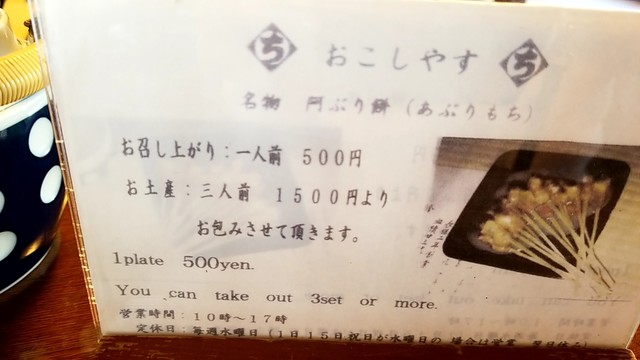 ち おこしやす ち
名物 阿ぶり餅（あぶりもち）
お召し上がり：一人前 500円
お土産：三人前 1500円より
お包みさせて頂きます。
1plate 500yen.
You can take out 3set or more.
営業時間：10時～17時
定休日：毎週水曜日（1日15日祝日が水曜日の 場合は営業 翌日休み）